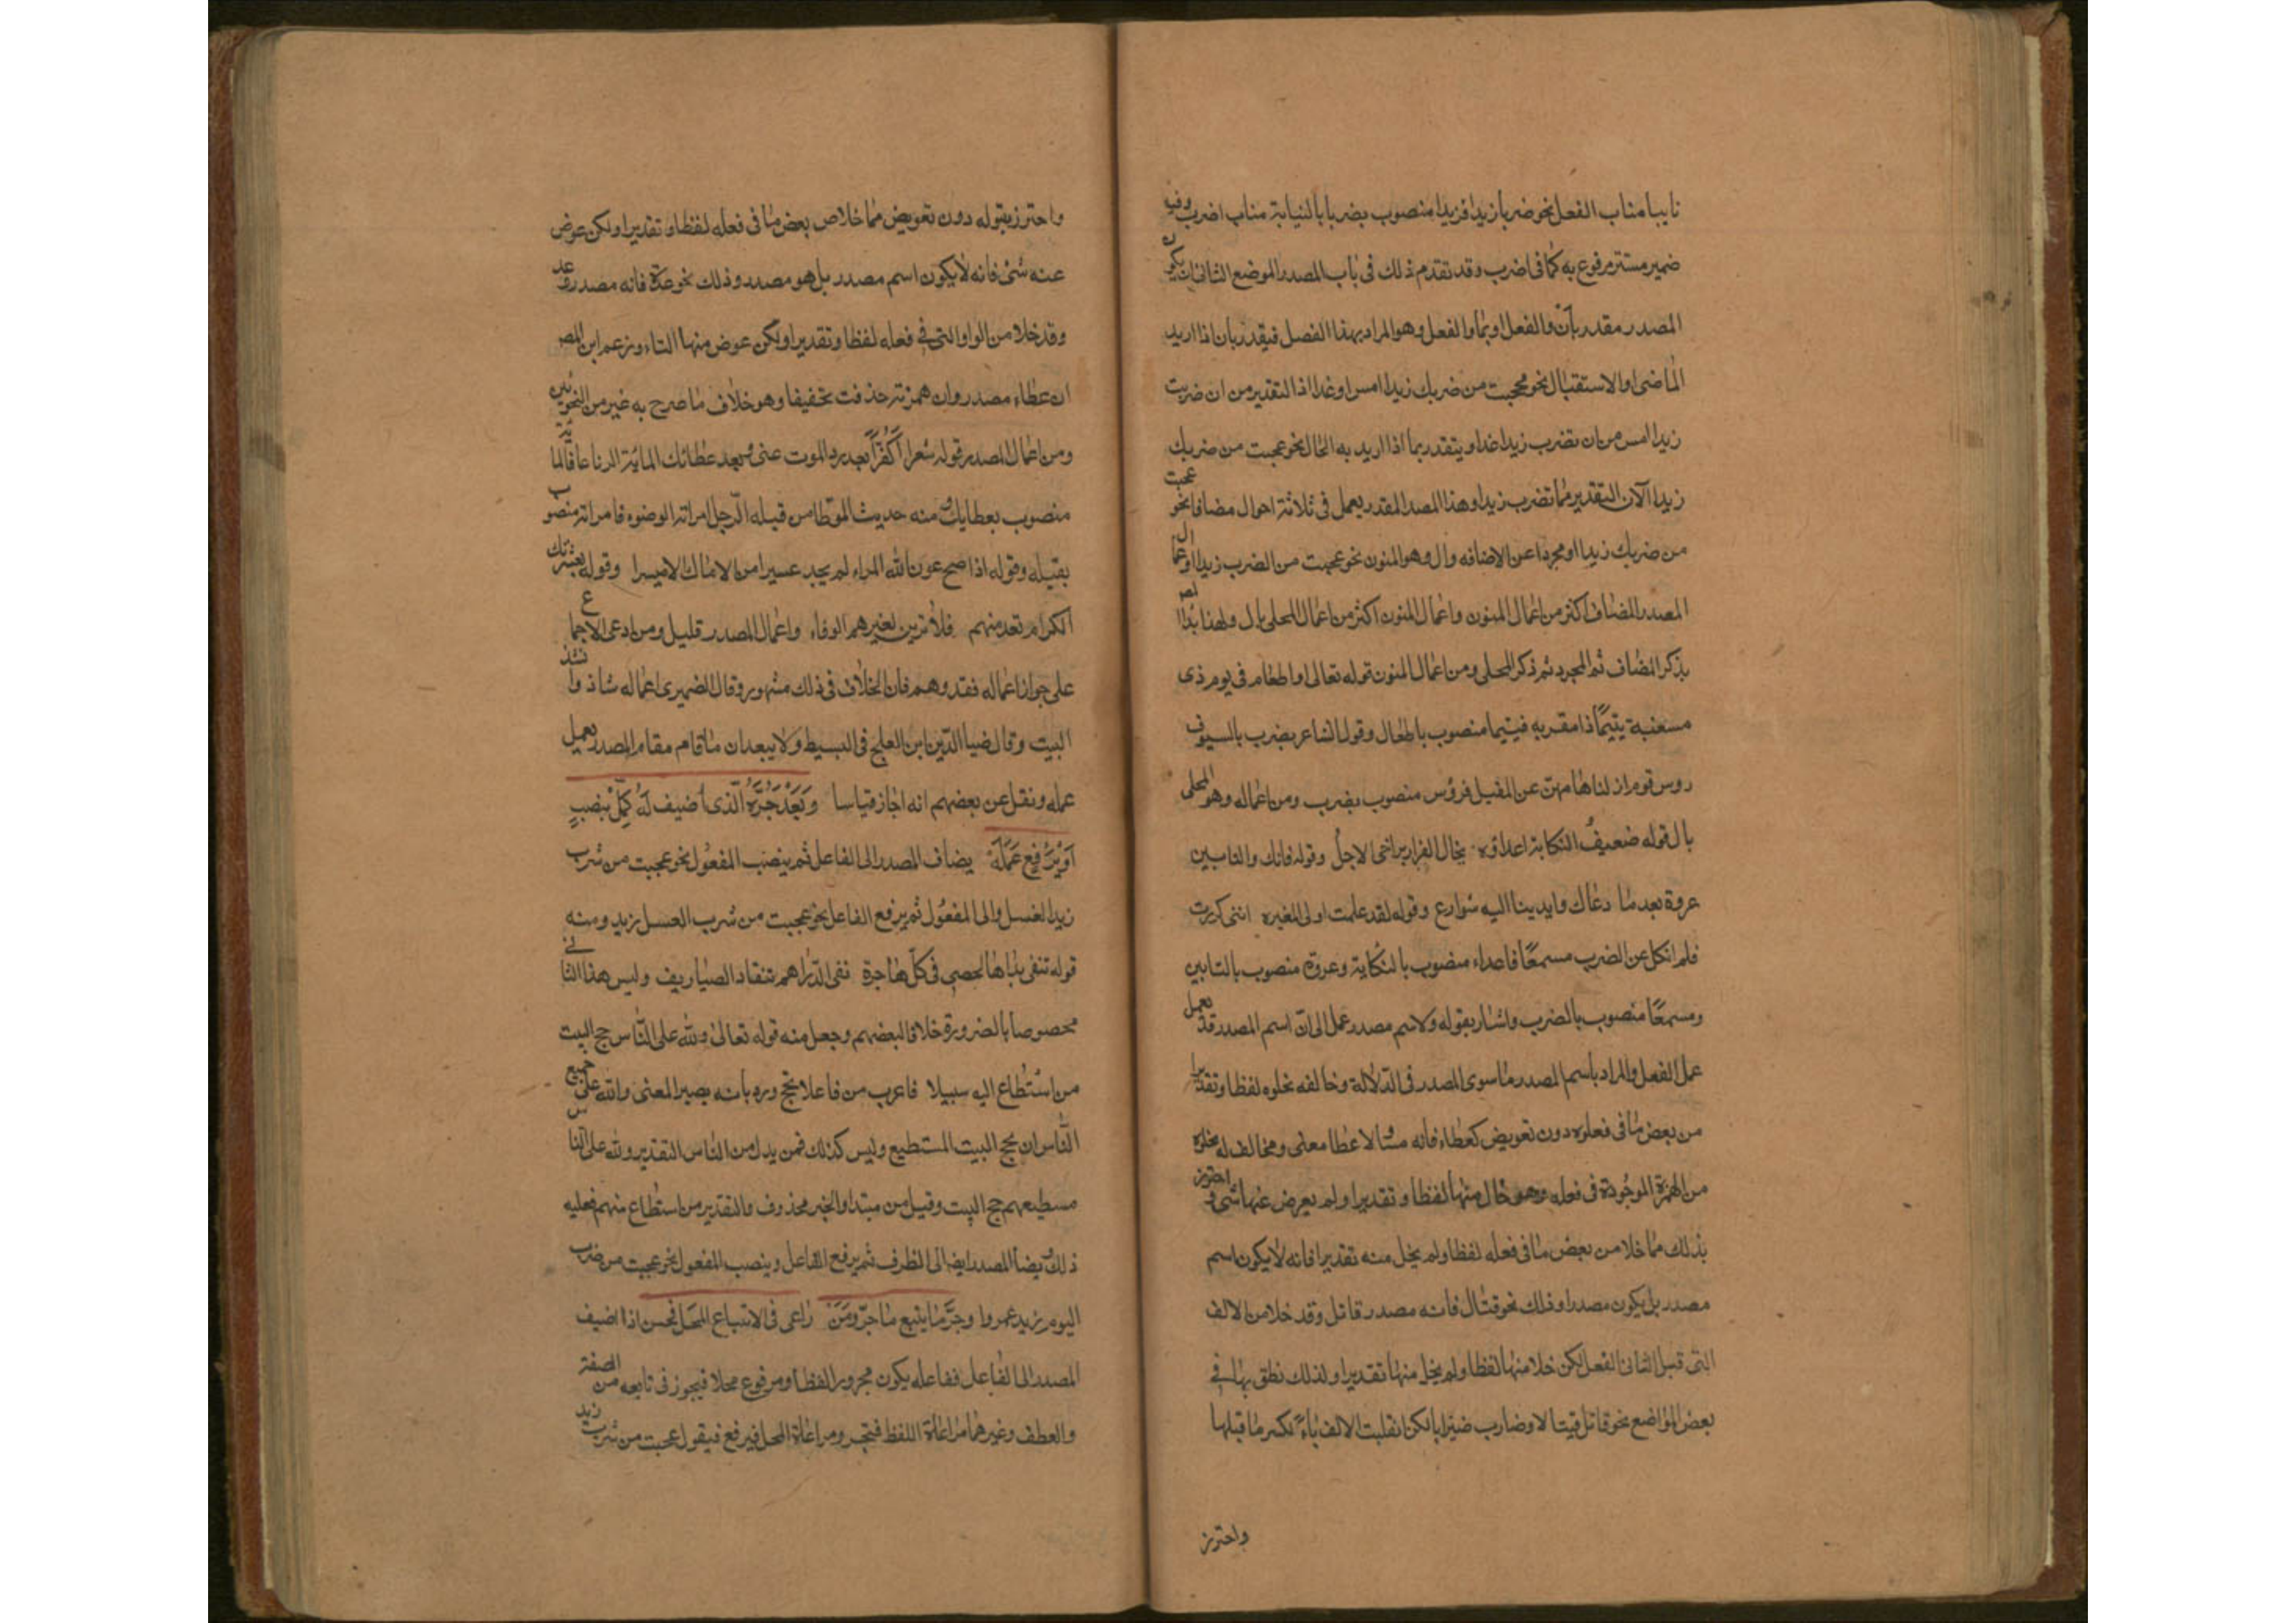 نايبا مناب الفعل نحو ضربا زيدا فزيدا منصوب بضربا بالنيابة مناب اضرب وفيه
ضمير مستتر مرفوع به كما فى اضرب وقد تقدم ذلك فى باب المصدر الموضع الثانى ان يكون
المصدر مقدر بأن والفعل او بما والفعل وهو المراد بهذا الفصل فيقدر بان اذا اريد
الماضى او الاستقبال نحو عجبت من ضربك زيدا امس او غدا اذ التقدير من ان ضربت
زيدا امس من ان تضرب زيدا غدا ويتقدر بما اذا اريد به الحال نحو عجبت من ضربك
زيدا الآن التقدير مما تضرب زيدا وهذا المصدر المقدر يعمل فى ثلاثة احوال مضافا نحو عجبت
من ضربك زيدا او مجردا عن الاضافه وال وهو المنون نحو عجبت من الضرب زيدا اعمال
المصدر المضاف اكثر من اعمال المنون واعمال المنون اكثر من اعمال المحلى بال ولهذا بدا المص
بذكر المضاف ثم المجرد ثم ذكر المحلى ومن اعمال المنون قوله تعالى او اطعام فى يوم ذى
مسغبة يتيمًا ذا مقربه فيتيما منصوب باطعام وقول الشاعر بضرب بالسيوف
روس قوم ازلنا هامهن عن المقيل فرؤس منصوب بضرب ومن اعماله وهو المحلى
بال قوله ضعيف النكاية اعداؤه يخال الفرار يراخى الاجل وقوله فانك والتابين
عروة بعد ما دعاك وايدينا اليه شوارع وقوله لقد علمت اولى المغيره اننى كررت
فلم انكل عن الضرب مسمعًا فاعداء منصوب بالنكاية وعروة منصوب بالتابين
ومسمعًا منصوب بالضرب واشار بقوله ولاسم مصدر عمل الى انّ اسم المصدر قد يعمل
عمل الفعل والمراد باسم المصدر ما سوى المصدر فى الدلالة وخالفه بخلوه لفظا وتقديرا
من بعض ما فى فعله دون تعويض كعطاء فانه مساو لاعطا معنى ومخالف له بخلوه
من الهمزة الموجودة فى فعله وهو خال منها لفظا وتقديرا ولم يعوض عنها شى واحترز
بذلك مما خلا من بعض ما فى فعله لفظا ولم يخل منه تقديرا فانه لا يكون اسم
مصدر بل يكون مصدرا وذلك نحو قتال فانه مصدر قاتل وقد خلا من الالف
التى قبل التاء فى الفعل لكن خلا منها لفظا ولم يخل منها تقديرا ولذلك نطق بها فى
بعض المواضع نحو قاتل قيتالا وضارب ضيرابا لكن انقلبت الالف ياءً لكسر ما قبلها
واحترز
واحترز بقوله دون تعويض مما خلا من بعض ما فى فعله لفظا وتقديرا ولكن عوض
عنه شئ فانه لا يكون اسم مصدر بل هو مصدر وذلك نحو عدة فانه مصدر وعد
وقد خلا من الواو التى فى فعله لفظا وتقديرا ولكن عوض منها التاء وزعم ابن المص
ان عطاء مصدر وان همزته حذفت تخفيفا وهو خلاف ما صرح به غيره من النحويين
ومن اعمال المصدر قوله شعر أكُفْرًا بعد رد الموت عنى وبعد عطائك المائة الرتاعا فالمائة
منصوب بعطايك ومنه حديث الموطا من قبله الرجل امراته الوضوء فامراته منصوب
بقبله وقوله اذا صح عون الله المراء لم يجد عسيرا من الامال الا ميسرا وقوله بعشرتك
الكرام تعد منهم فلا ترين لغيرهم الوفاء واعمال المصدر قليل ومن ادعى الاجماع
على جواز اعماله فقد وهم فان الخلاف فى ذلك مشهور وقال الصميرى اعماله شاذ وانشد
البيت وقال ضيا الدّين ابن العلج فى البسيط ولا يبعد ان ما قام مقام المصدر يعمل
عمله ونقل عن بعضهم انه اجاز قياسا وَبَعْدَ جَرِّهُ الّذى أضيف لَهُ كَمِّلْ بنصبٍ
اَوْ بِرَفْعٍ عَمَلَهُ يضاف المصدر الى الفاعل ثم ينصب المفعول نحو عجبت من شرب
زيد العسل والى المفعول ثم يرفع الفاعل نحو عجبت من شرب العسل زيد ومنه
قوله تنفى يداها الحصى فى كلّ هاجرة نفى الدّراهم تنقاد الصياريف وليس هذا الثانى
مخصوصا بالضرورة خلافا لبعضهم وجعل منه قوله تعالى ولله على النّاس حج البيت
من استطاع اليه سبيلا فاعرب من فاعلا بحج ورد بانه يصير المعنى ولله على جميع
النّاس ان يحج البيت المستطيع وليس كذلك فمن بدل من الناس التقدير ولله على الناس
مستطيعهم حج البيت وقيل من مبتدا والخبر محذوف والتقدير من استطاع منهم فعليه
ذلك ويضاف المصدر ايضا الى الظرف ثم يرفع الفاعل وينصب المفعول نحو عجبت من ضرب
اليوم زيد عمروا وجرَّ ما يتبع ما جرّ ومَنْ راعى فى الاتباع المحل فحسن اذا اضيف
المصدر الى الفاعل ففاعله يكون مجرورا لفظا ومرفوع محلا فيجوز فى تابعه من الصفة
والعطف وغيرهما مراعاة اللفظ فيجر ومراعاة المحل فيرفع فيقول عجبت من شرب زيد